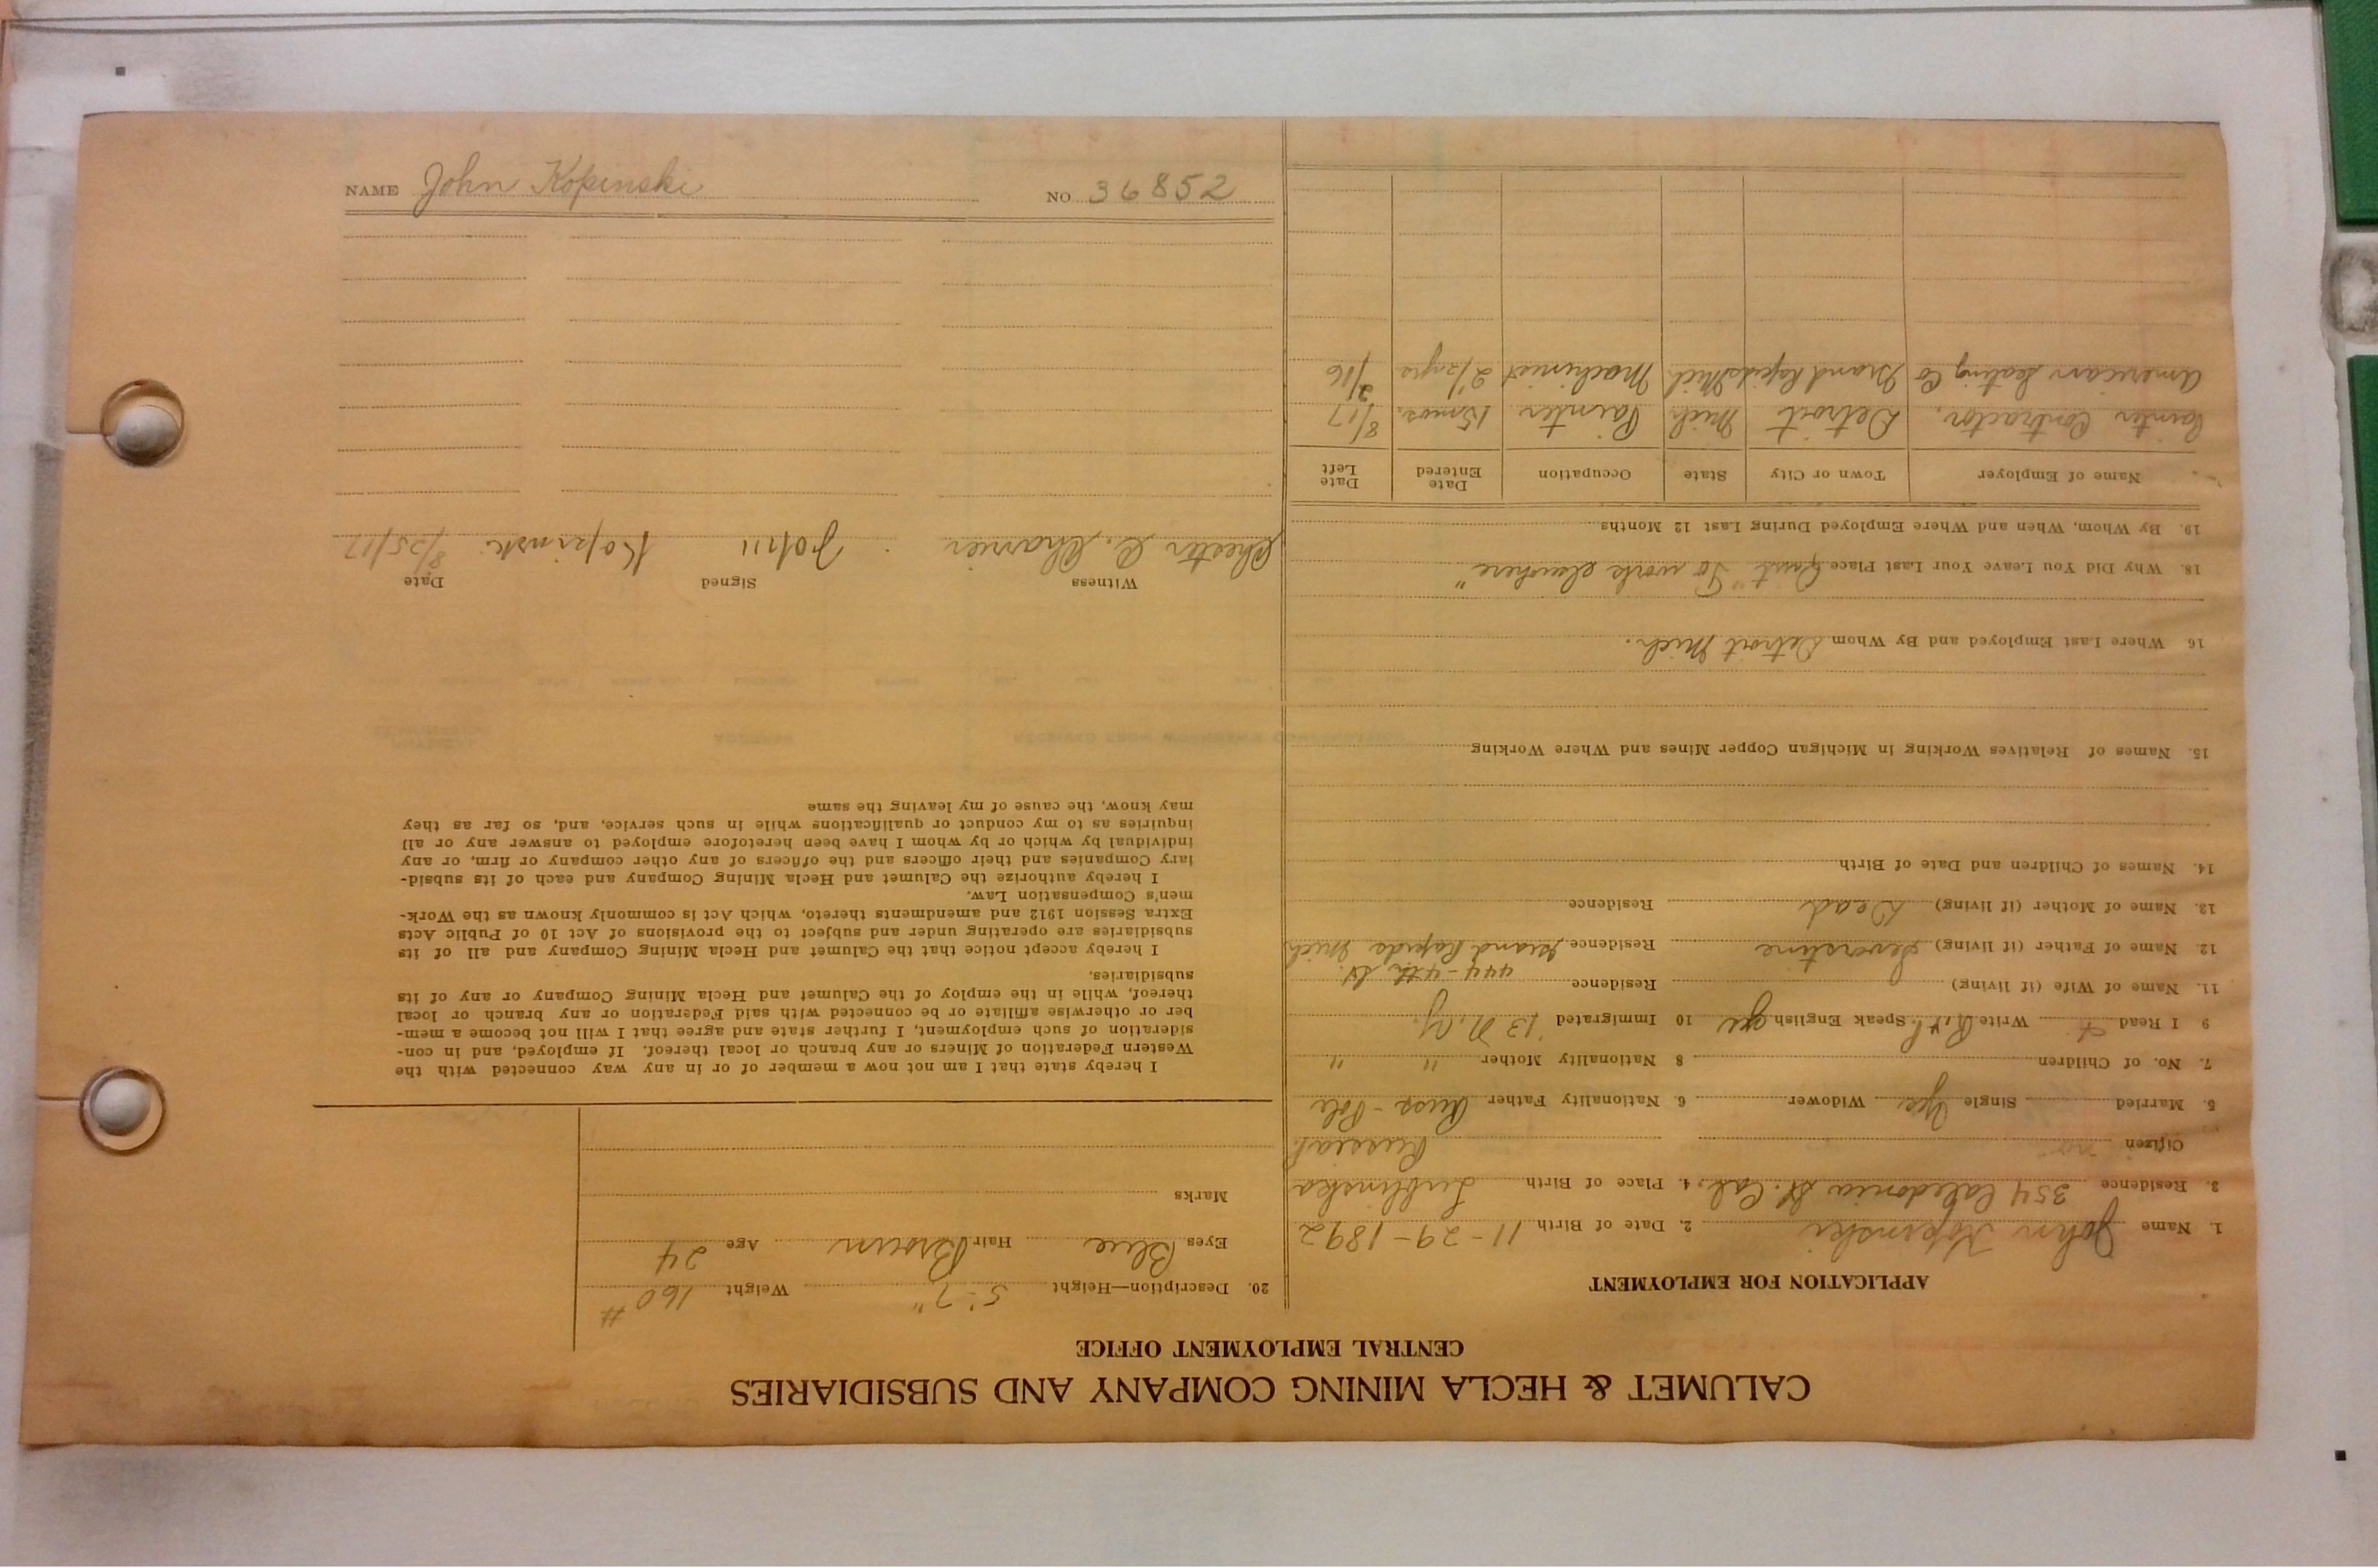 CALUMET & HECLA MINING COMPANY AND SUBSIDIARIES
CENTRAL EMPLOYMENT OFFICE
APPLICATION FOR EMPLOYMENT
1. Name John Kopinski 2. Date of Birth 11-29-1892
3. Residence 354 Caledonia St. Cal, 4. Place of Birth Lublinska
Citizen no Russia
5. Married Single Yes Widower 6. Nationality Father Russ-Pole
7. No. of Children 8 Nationality Mother " "
9 I Read Write Speak English yes 10 Immigrated '13 N.Y.
11. Name of Wife (if living) Residence 444-4th St.
12. Name of Father (if living) Residence Grand Rapids Mich
13. Name of Mother (if living) Dead Residence
14. Names of Children and Date of Birth
15. Names of Relatives Working in Michigan Copper Mines and Where Working
16 Where Last Employed and By Whom Detroit Mich.
18. Why Did You Leave Your Last Place Quit "To work elsewhere"
19. By Whom, When and Where Employed During Last 12 Months
Name of Employer Town or City State Occupation Date Entered Date Left
Painter Contractor. Detroit Mich Painter 15 mos. 8/17
American Seating Co Grand Rapids Mich Machinist 2 1/2 yrs /16
20. Description—Height 5-7" Weight 160#
Eyes Blue Hair Brown Age 24
Marks
I hereby state that I am not now a member of or in any way connected with the
Western Federation of Miners or any branch or local thereof. If employed, and in con-
sideration of such employment, I further state and agree that I will not become a mem-
ber or otherwise affiliate or be connected with said Federation or any branch or local
thereof, while in the employ of the Calumet and Hecla Mining Company or any of its
subsidiaries.
I hereby accept notice that the Calumet and Hecla Mining Company and all of its
subsidiaries are operating under and subject to the provisions of Act 10 of Public Acts
Extra Session 1912 and amendments thereto, which Act is commonly known as the Work-
men's Compensation Law.
I hereby authorize the Calumet and Hecla Mining Company and each of its subsid-
iary Companies and their officers and the officers of any other company or firm, or any
individual by which or by whom I have been heretofore employed to answer any or all
inquiries as to my conduct or qualifications while in such service, and, so far as they
may know, the cause of my leaving the same
Witness Signed Date
Chester C. Charrier John Kopinski 8/25/17
NAME John Kopinski NO 36852